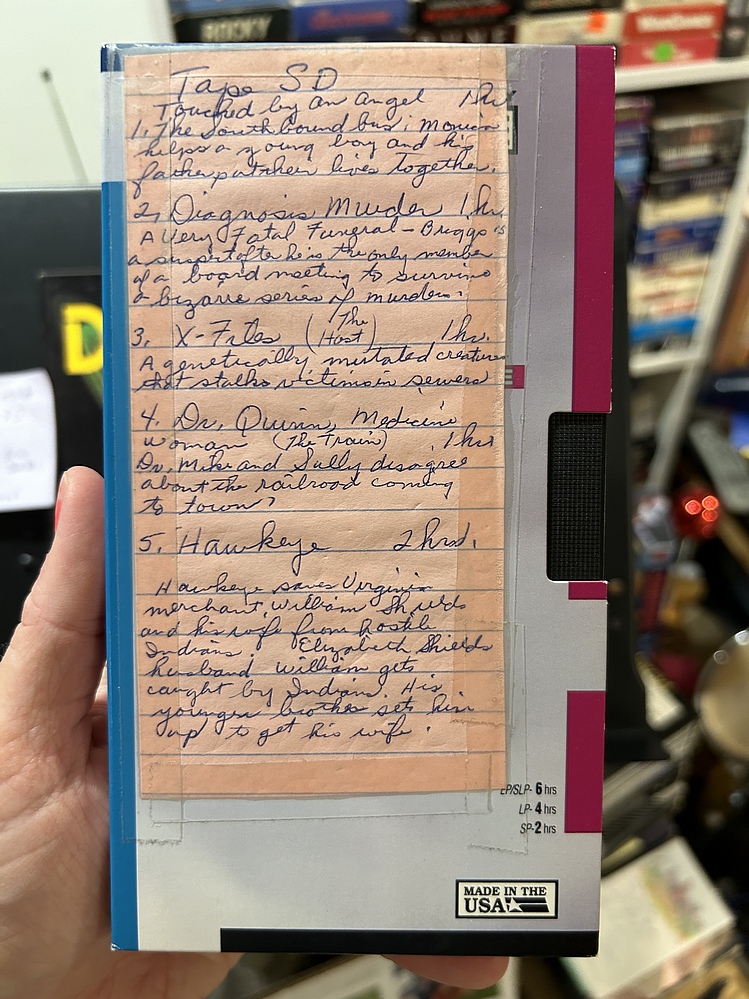 ROCKY
Tape SD
Touched by an Angel 1hr
1. The Southbound bus; Monica
helps a young boy and his
father patch their lives together.
2. Diagnosis Murder 1hr.
A Very Fatal Funeral - Briggs is
a suspect after he is the only member
of a board meeting to survive
a bizarre series of murders.
3. X-Files (The Host) 1hr.
A genetically mutated creature
that stalks victims in sewers
4. Dr. Quinn, Medicine
Woman (The Train) 1hr
Dr. Mike and Sully disagree
about the railroad coming
to town?
5. Hawkeye 2hrs.
Hawkeye saves Virginia
merchant, William Shields
and his wife from hostile
Indians. Elizabeth Shields
husband William gets
caught by Indians. His
younger brother sets him
up to get his wife.
EP/SLP- 6 hrs
LP- 4 hrs
SP- 2 hrs
MADE IN THE
USA
D